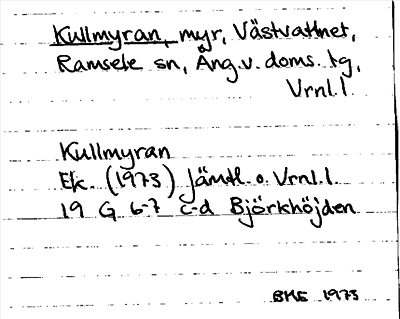 Kullmyran, myr, Västvattnet,
Ramsele sn, Ång.v. doms. tg,
Vrnl. l.
Kullmyran
Ek. (1973) Jämtl. o. Vrnl. l.
19 G 6-7 c-d Björkhöjden
BHE 1973